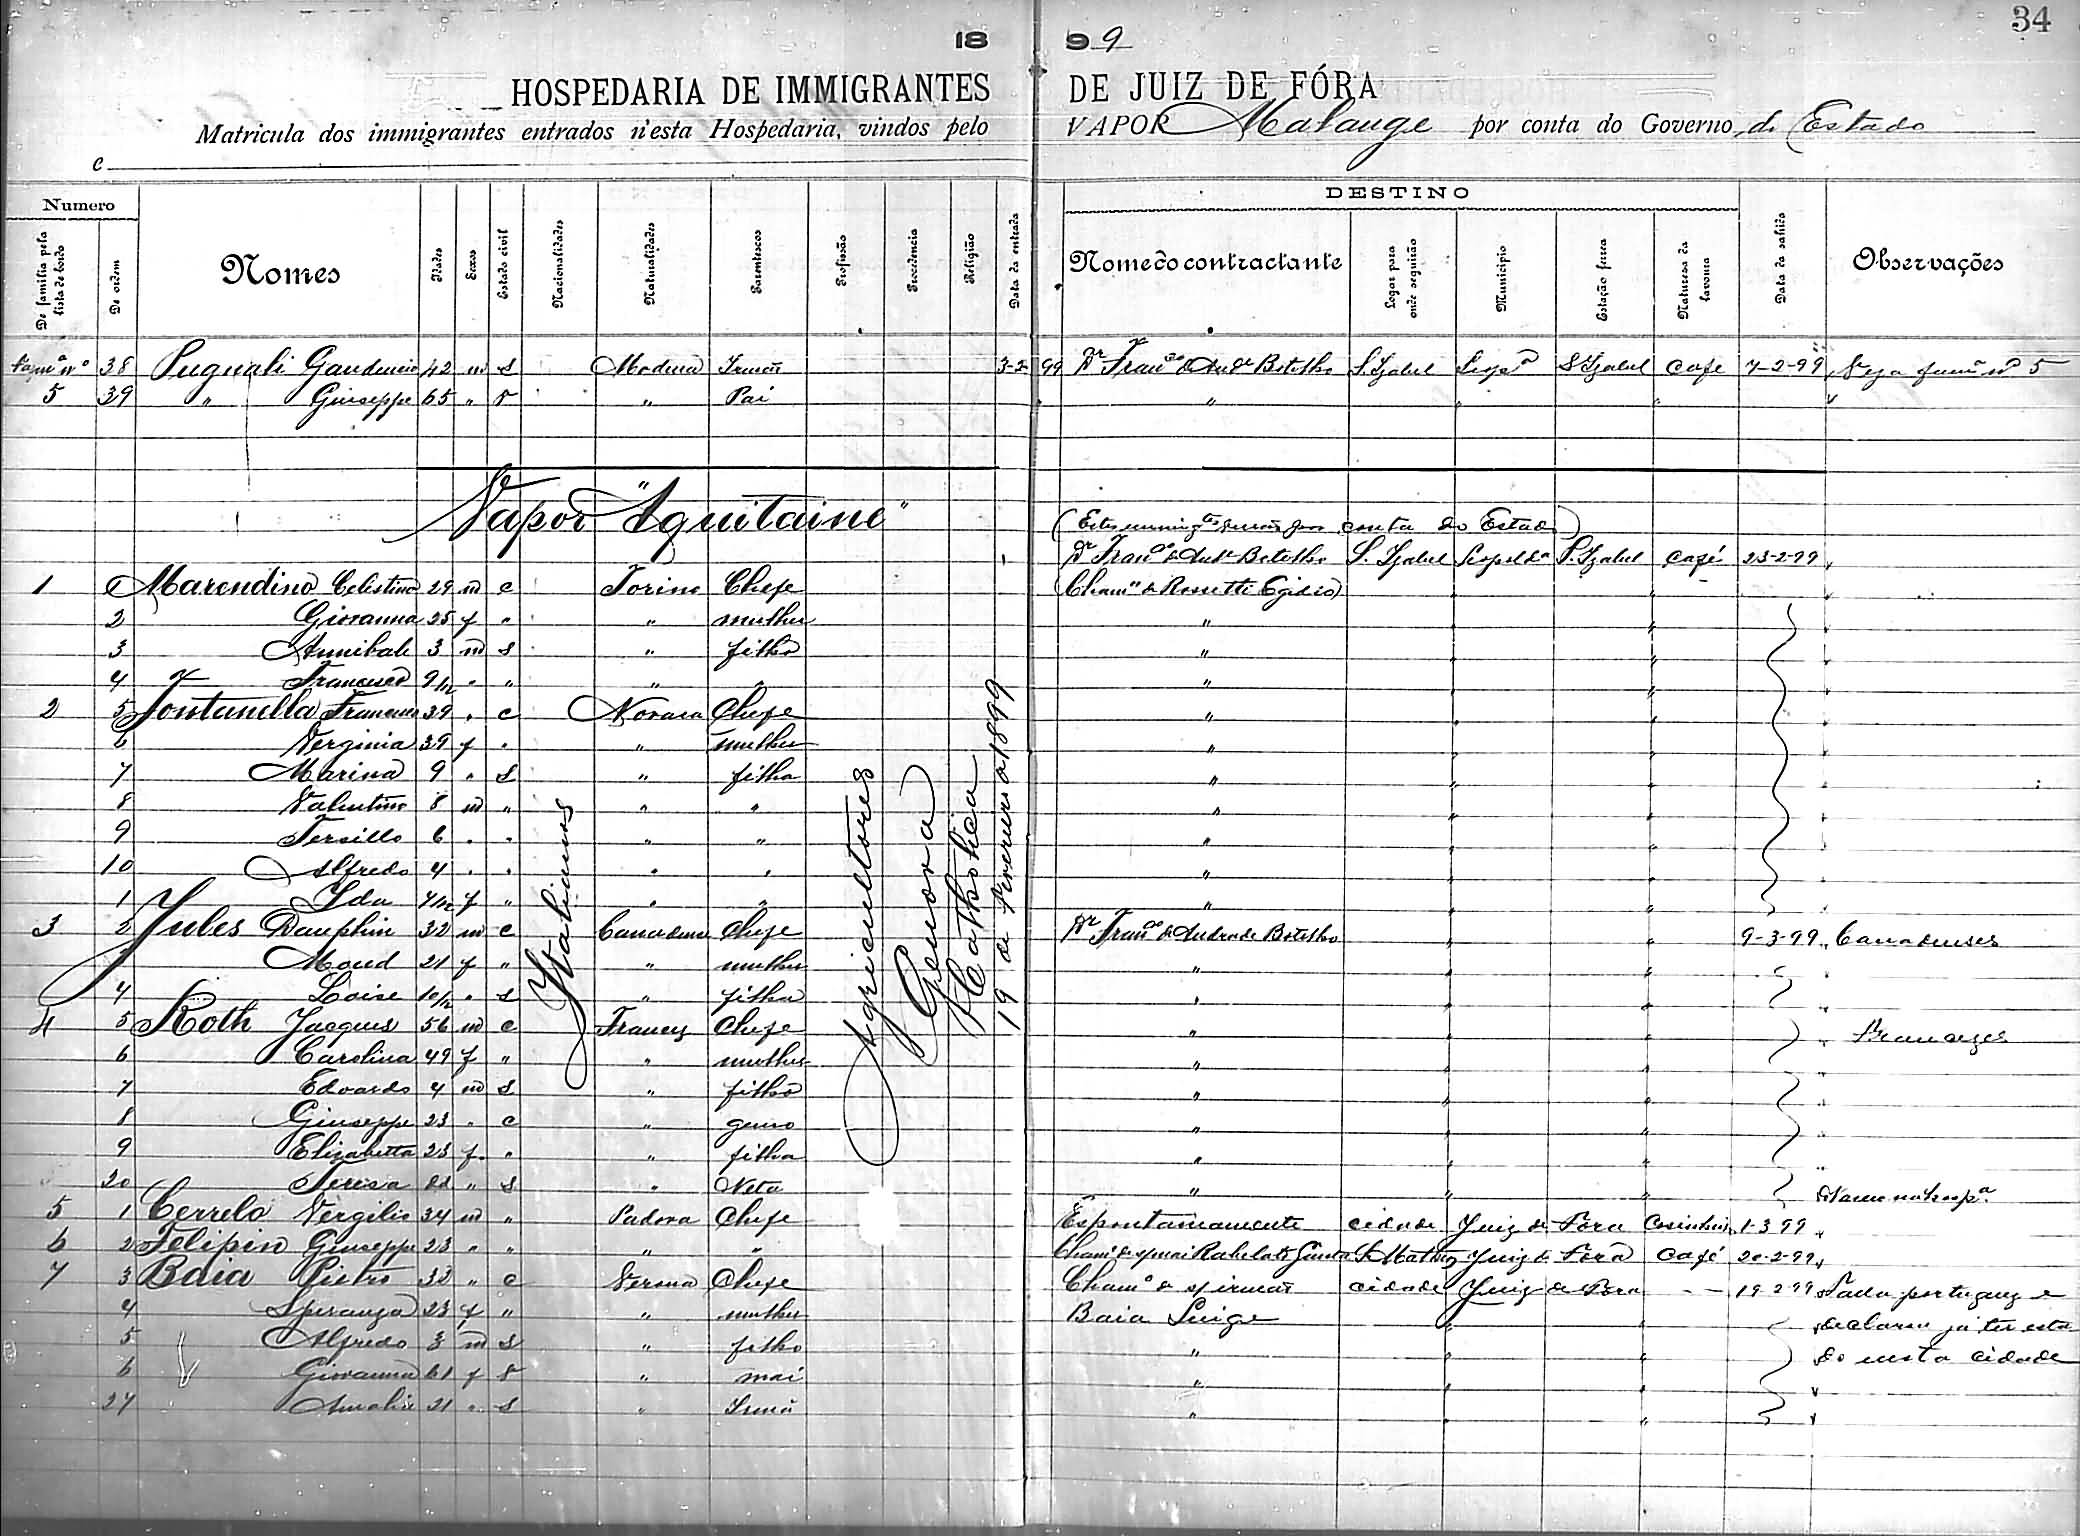 34
18 99
HOSPEDARIA DE IMMIGRANTES DE JUIZ DE FÓRA
Matricula dos immigrantes entrados n'esta Hospedaria, vindos pelo VAPOR Malange por conta do Governo do Estado
e
Numero DESTINO
De familia pela lista de bordo De ordem Nomes Idades Sexos Estado civil Nacionalidades Naturalidades Parentescos Profissão Procedencia Religião Data da entrada Nome do contractante Logar para onde seguirão Municipio Estação ferrea Naturesa da lavoura Data da sahida Observações
38 Pugnali Gaudencio 42 m s Modena Irmão 3-2-99 Dr Franco de Andr Botelho S. Izabel S Izabel Café 7-2-99 Veja famª nº 5
5 39 " Giuseppe 65 " v " Pai " " " "
Vapor "Aquitaine"
conta do Estado)
Dr Franco de Andr Botelho S. Izabel Leopoldª S. Izabel café 23-2-99
1 Marendino Celestino 29 m c Torino Chefe (Cham de Rossetti Egidio)
2 Giovanna 25 f " " mulher "
3 Annibale 3 m s " filho "
4 Francisco 9/12 " " " " "
2 5 Fontanella Francesco 39 " c Novara Chefe "
6 Verginia 39 f " " mulher "
7 Marina 9 " s " filha "
8 Valentino 8 m " " " "
9 Tersillo 6 " " " " "
10 Alfredo 4 " " " " "
1 Ida 4/12 f " " " "
3 2 Jules Dauphin 32 m c Canadense Chefe Dr Franco de Andrade Botelho 9-3-99 Canadenses
3 Moud 21 f " " mulher "
4 Loise 10/12 " s " filha "
4 5 Roth Jacques 56 m c Francez Chefe " Francezes
6 Carolina 49 f " " mulher "
7 Edoardo 4 m s " filho "
8 Giuseppe 23 " c " genro "
9 Elizabetta 23 f " " filha "
20 Teresa " s " Neta "
5 1 Cerrelo Vergilio 34 m " Padova Chefe Espontaneamente cidade Juiz de Fora 1-3-99
6 2 Felipin Giuseppe 23 " " " " Juiz de Fora Café 20-2-99
7 3 Baia Pietro 33 " c Verona Chefe Cham de s/ irmão cidade Juiz de Fora - - 19-2-99 Falla portuguez e
4 Speranza 23 f " " mulher Baia Luige declarou já ter esta
5 Alfredo 3 m s " filho " do nesta cidade
6 Giovanna 61 f v " mai "
27 Amalia 21 " s " Irmã "
Italianos
Agricultores
Genova
Catholica
19 de Fevereiro de 1899